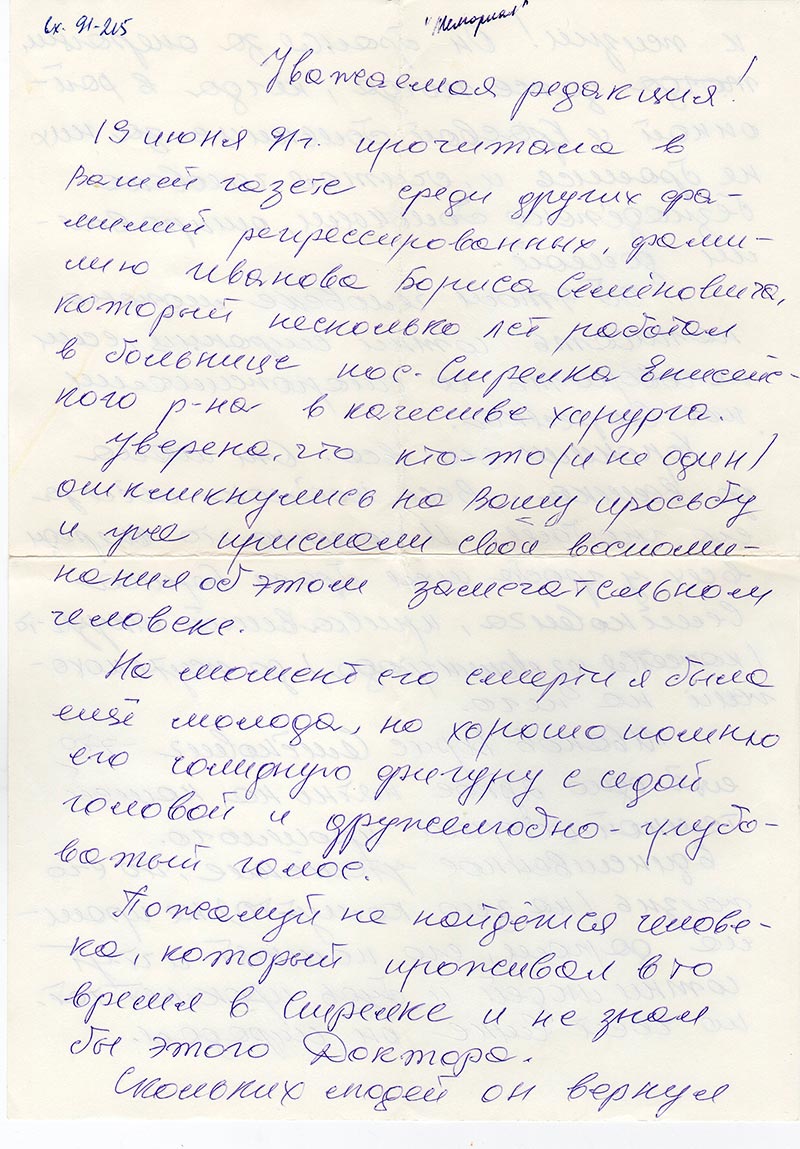 вх. 91-215
"Мемориал"
Уважаемая редакция!
19 июня 91г. прочитала в
Вашей газете среди других фа-
милий репрессированных, фами-
лию Иванова Бориса Семёновича,
который несколько лет работал
в больнице пос. Стрелка Енисейс-
кого р-на в качестве хирурга.
Уверена, что кто-то (и не один)
откликнулись на Вашу просьбу
и уже прислали свои воспоми-
нания об этом замечательном
человеке.
На момент его смерти я была
ещё молода, но хорошо помню
его солидную фигуру с седой
головой и дружелюбно-грубо-
ватый голос.
Пожалуй не найдётся челове-
ка, который проживал в то
время в Стрелке и не знал
бы этого Доктора.
Скольких людей он вернул